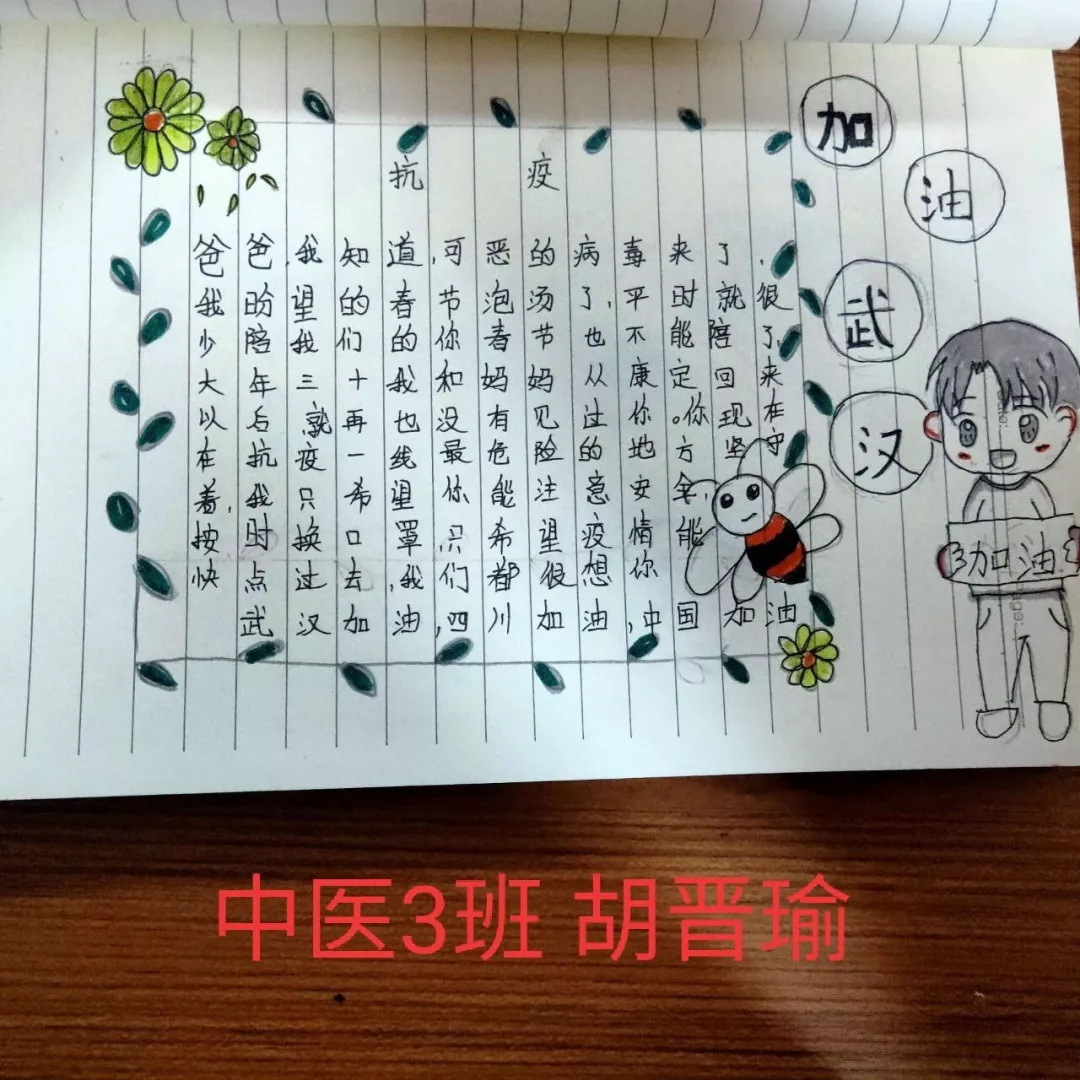 抗 疫
爸爸,我知道,可恶的病毒来了,
我盼望的春节泡汤了,平时就很
少陪我们的你春节也不能陪了,
大年三十我和妈妈从康定回来
以后就再也没有见过你。你现在
在抗疫一线最危险的地方坚守
着,我只希望你能注意安全,
按时换口罩,只希望疫情能
快点过去,我们都很想你
武汉加油,四川加油,中国加油
加
油
武
汉
加油
中医3班 胡晋瑜